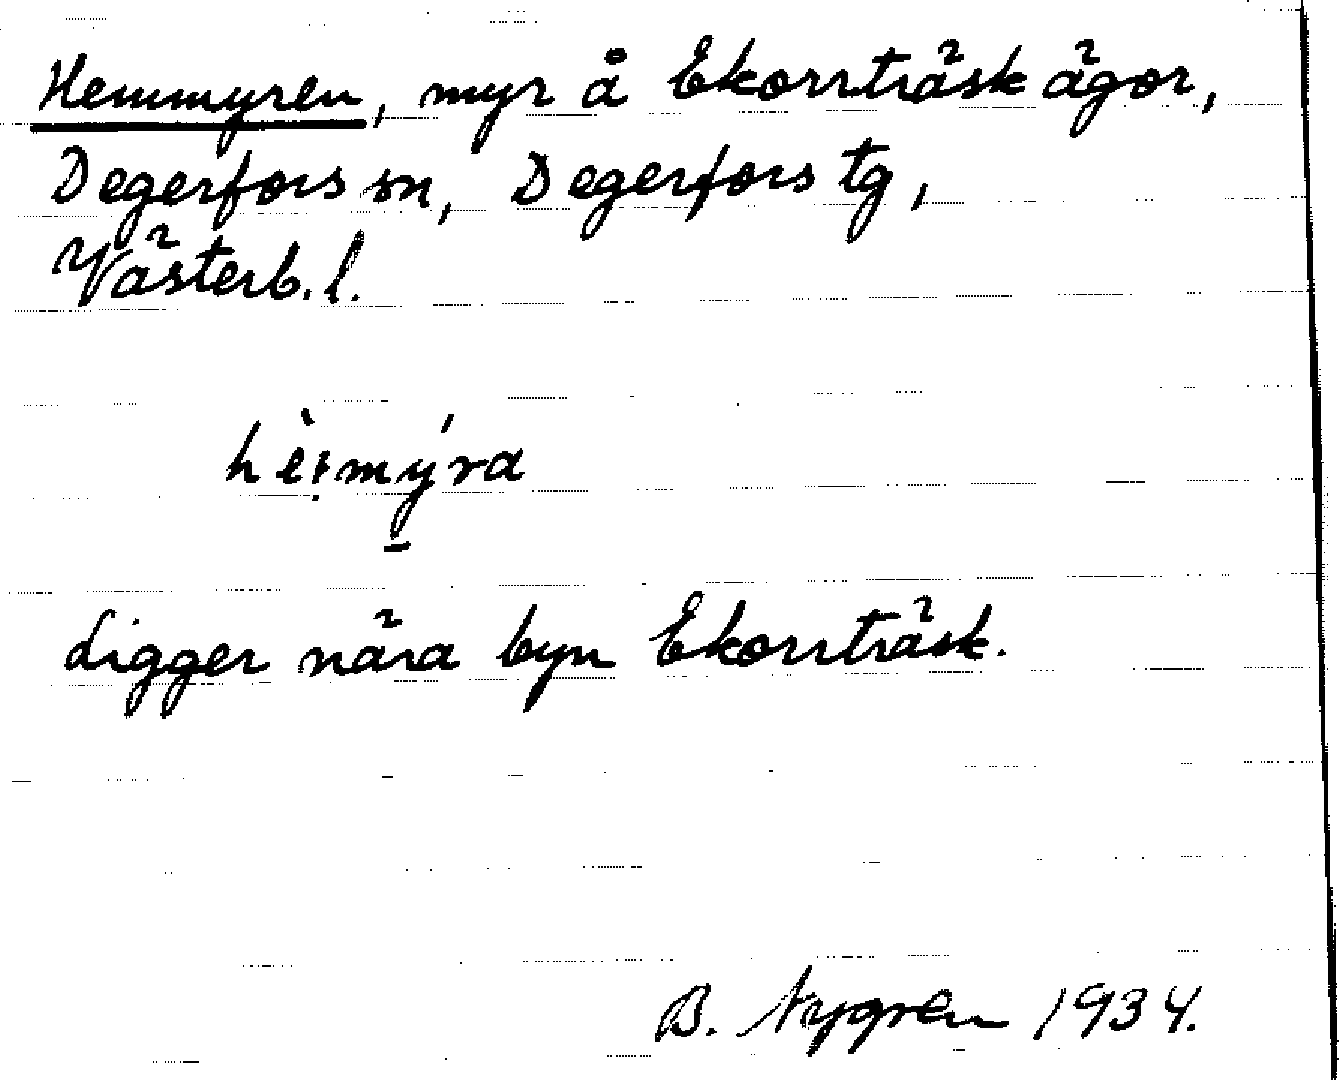 Hemmyren, myr å Ekorrträsk ägor,
Degerfors sn, Degerfors tg,
Västerb. l.
Ligger nära byn Ekorrträsk.
B. Nygren 1934.